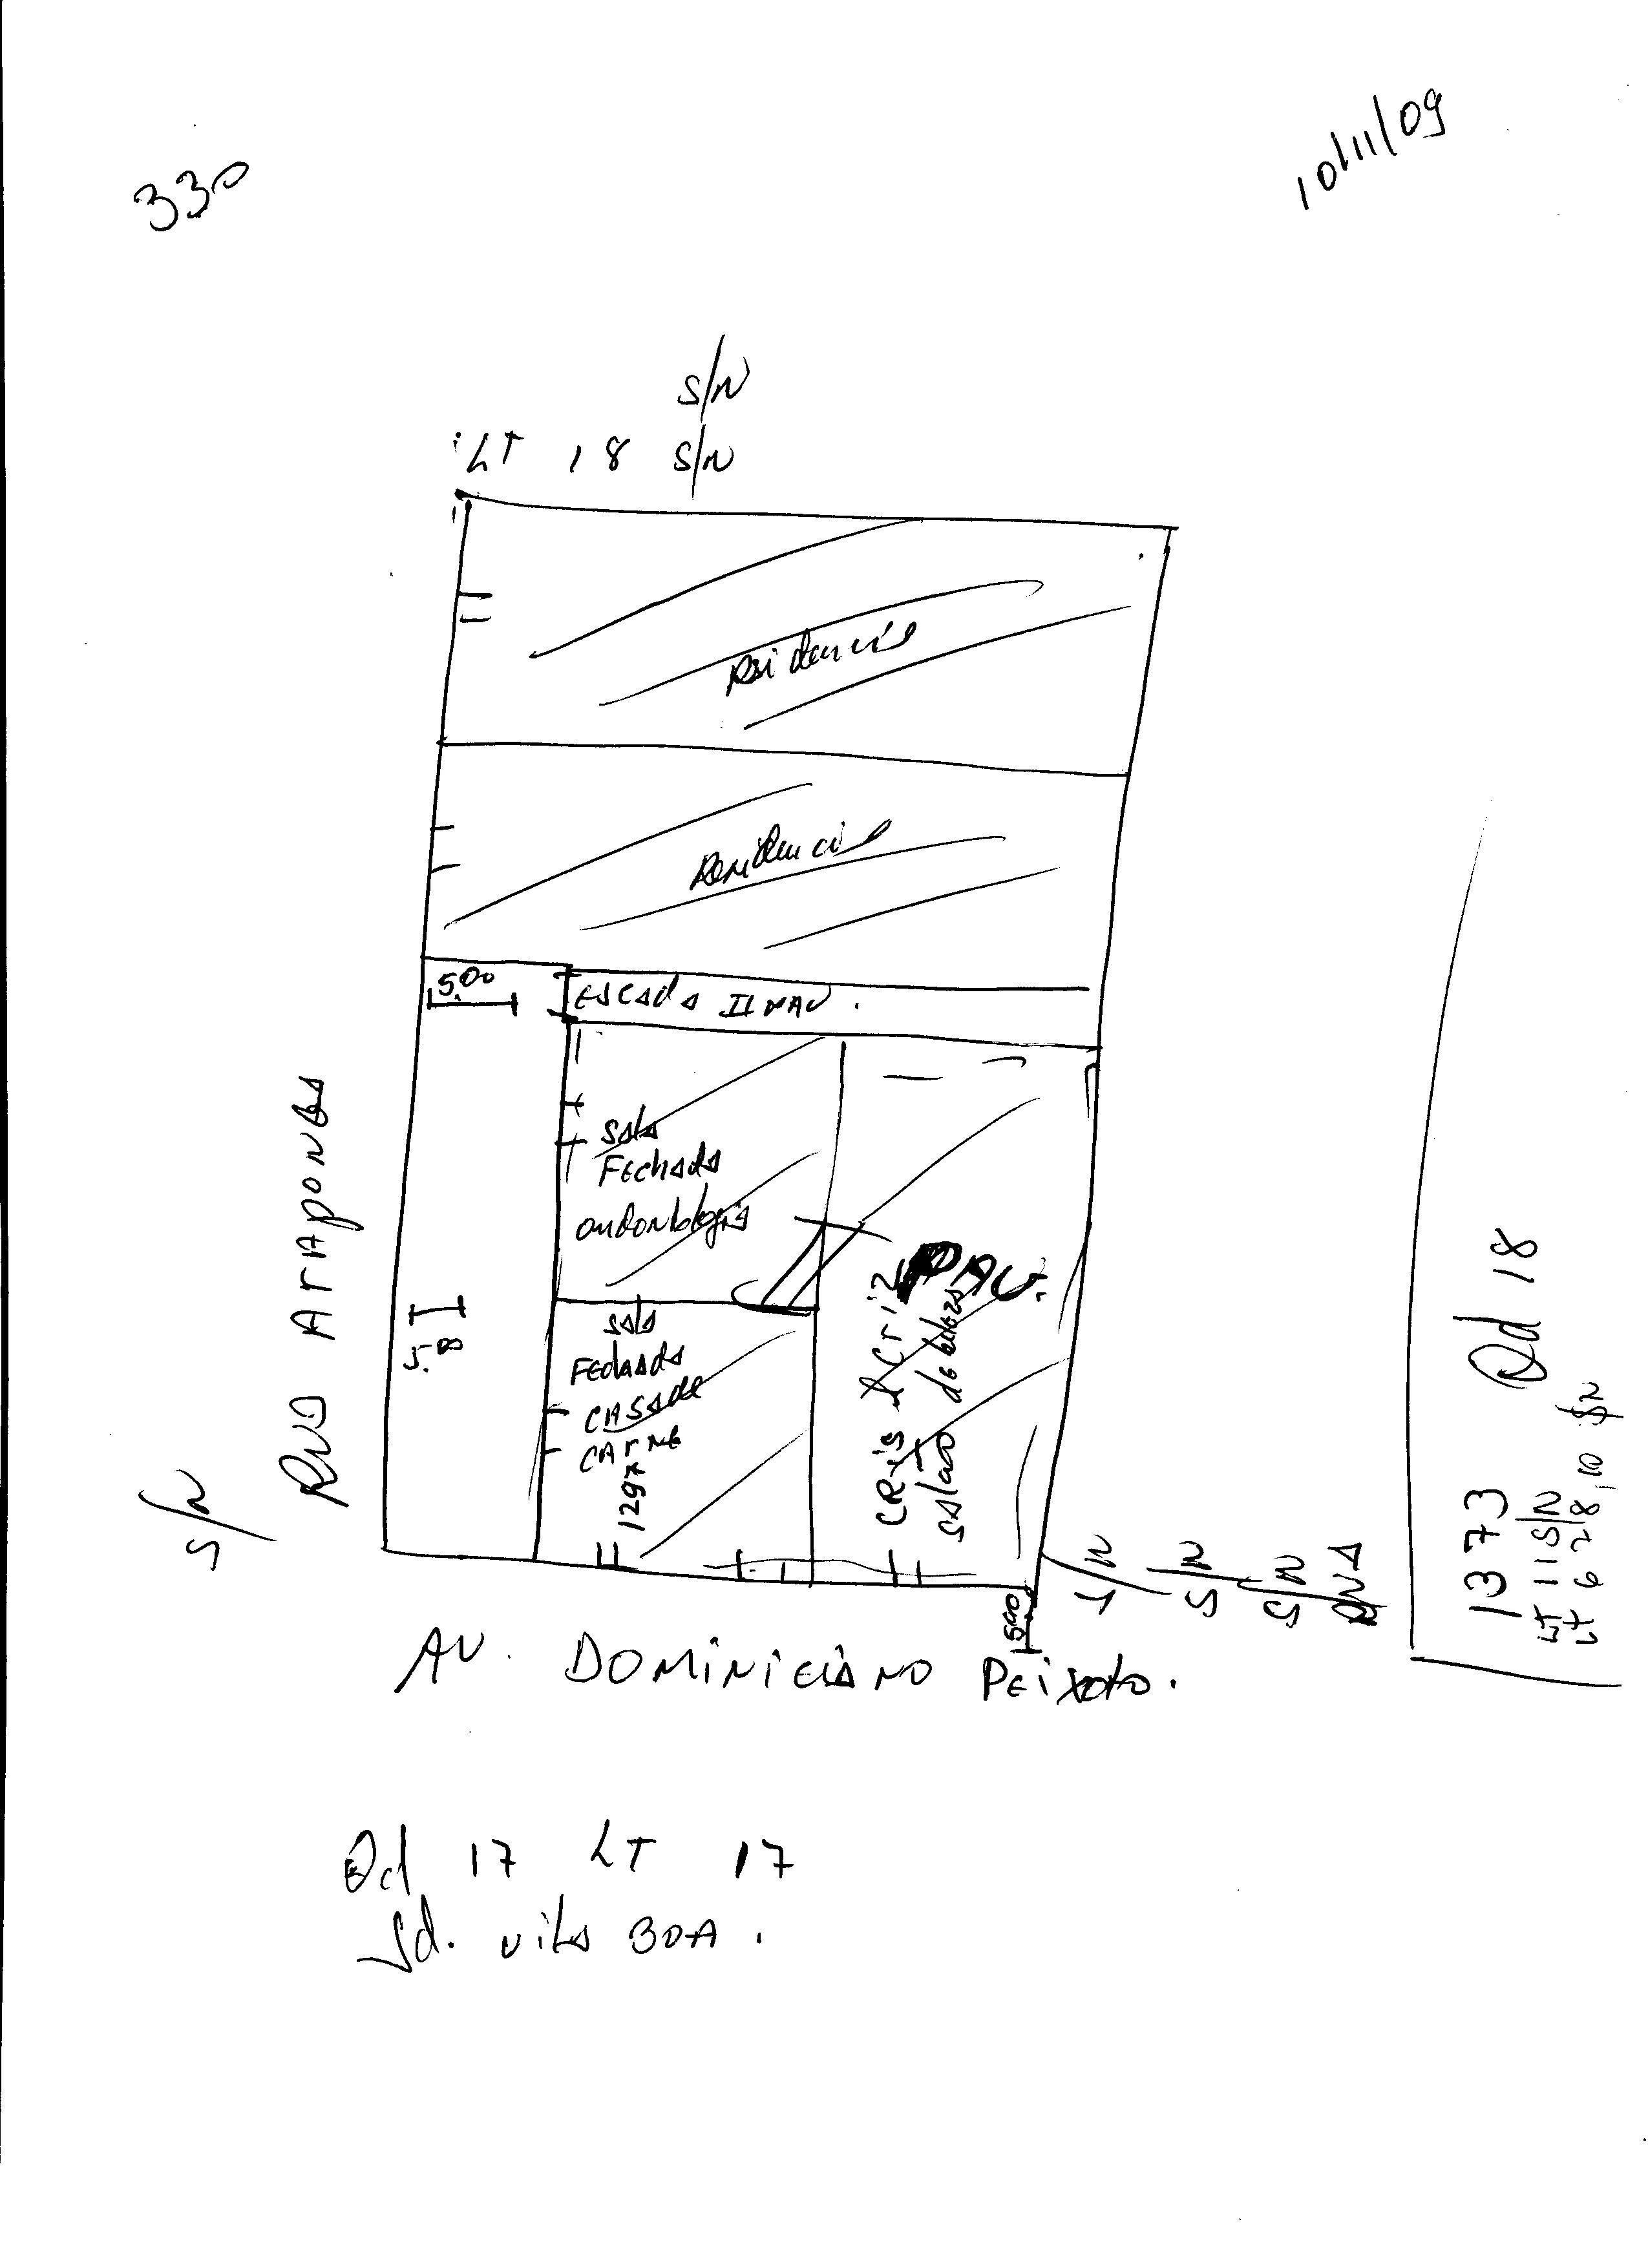 330
10/11/09
S/N
LT 18 S/N
Residencia
Residencia
5,00
Escada II PAV.
Sala
Fechada
ondontologia
Sala
Fechada
CASA de
CARNE
1297
CRis & Criz
salão de beleza
PAV.
5,00
RUA ArAPONGA
S/N
S/N
S/N
S/N
RUA
5,00
AV. DOMiNiCiANO PEiXoto.
Qd 18
1373
LT 11 S/N
Qd 17 LT 17
Jd. vila BOA.